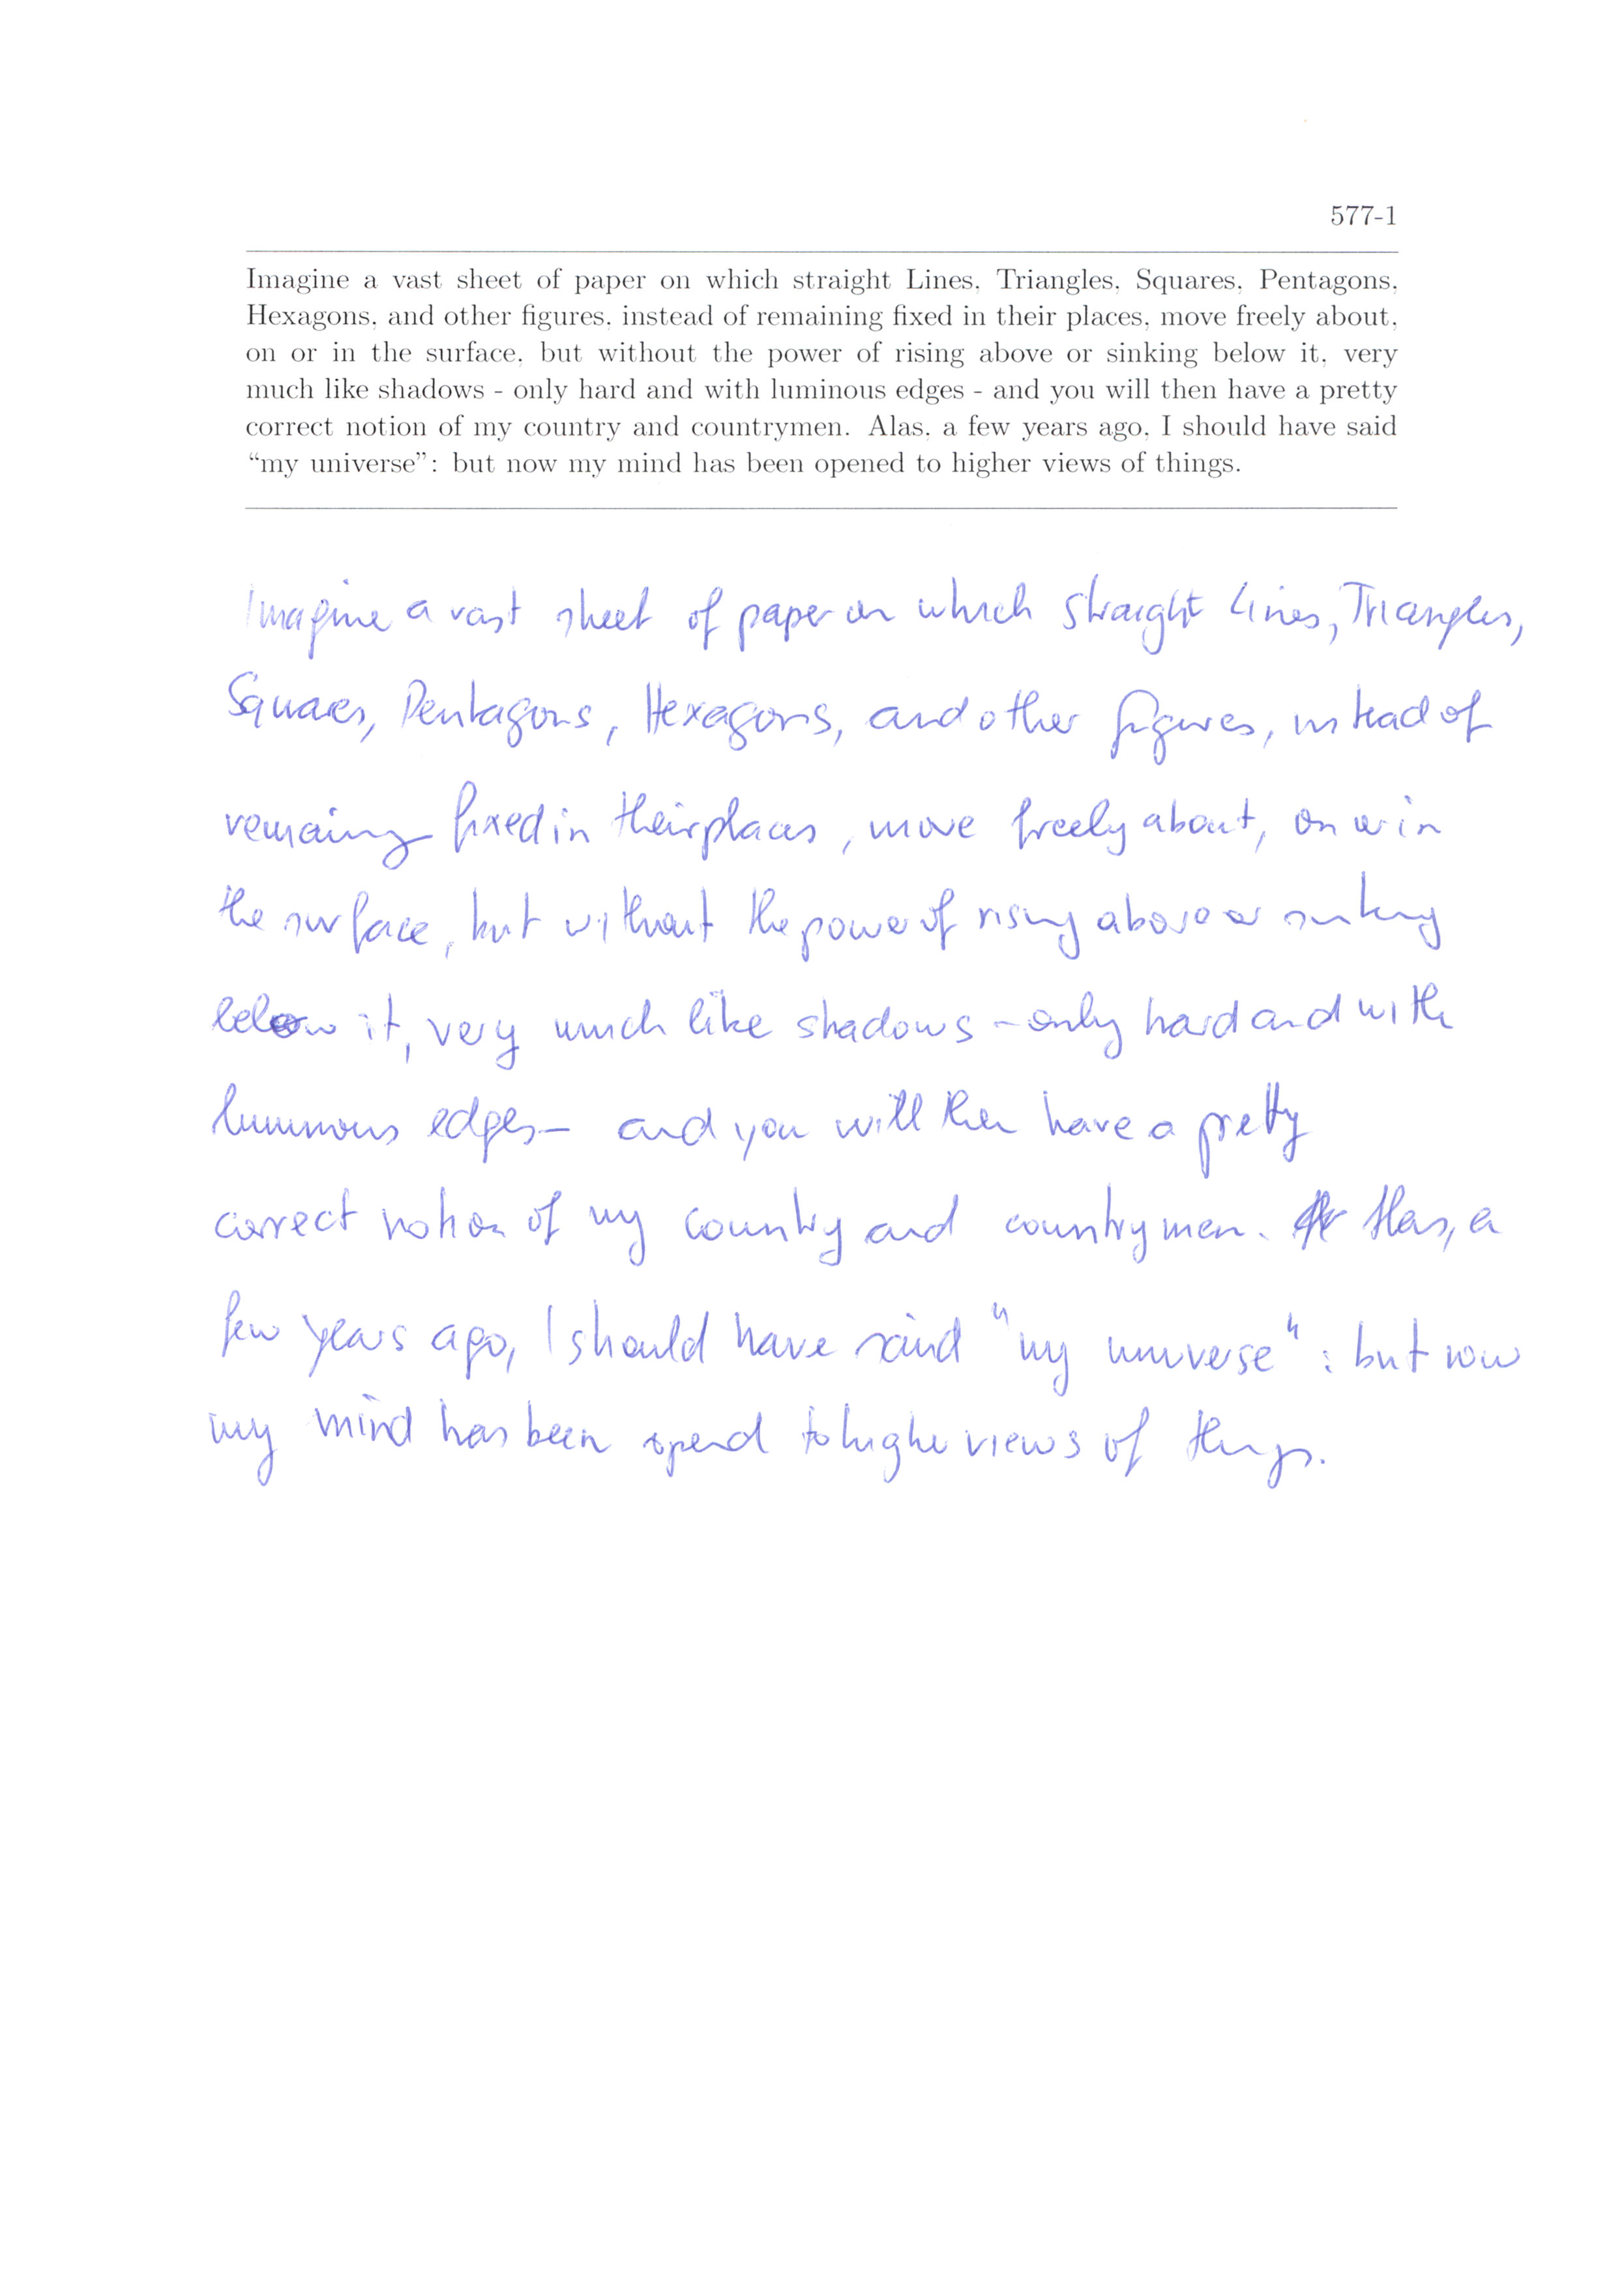 577-1
Imagine a vast sheet of paper on which straight Lines, Triangles, Squares, Pentagons,
Hexagons, and other figures, instead of remaining fixed in their places, move freely about,
on or in the surface, but without the power of rising above or sinking below it, very
much like shadows - only hard and with luminous edges - and you will then have a pretty
correct notion of my country and countrymen. Alas, a few years ago, I should have said
“my universe”: but now my mind has been opened to higher views of things.
Imagine a vast sheet of paper on which straight Lines, Triangles,
Squares, Pentagons, Hexagons, and other figures, instead of
remaining fixed in their places, move freely about, on or in
the surface, but without the power of rising above or sinking
below it, very much like shadows - only hard and with
luminous edges - and you will then have a pretty
correct notion of my country and countrymen. Alas, a
few years ago, I should have said "my universe": but now
my mind has been opend to higher views of things.